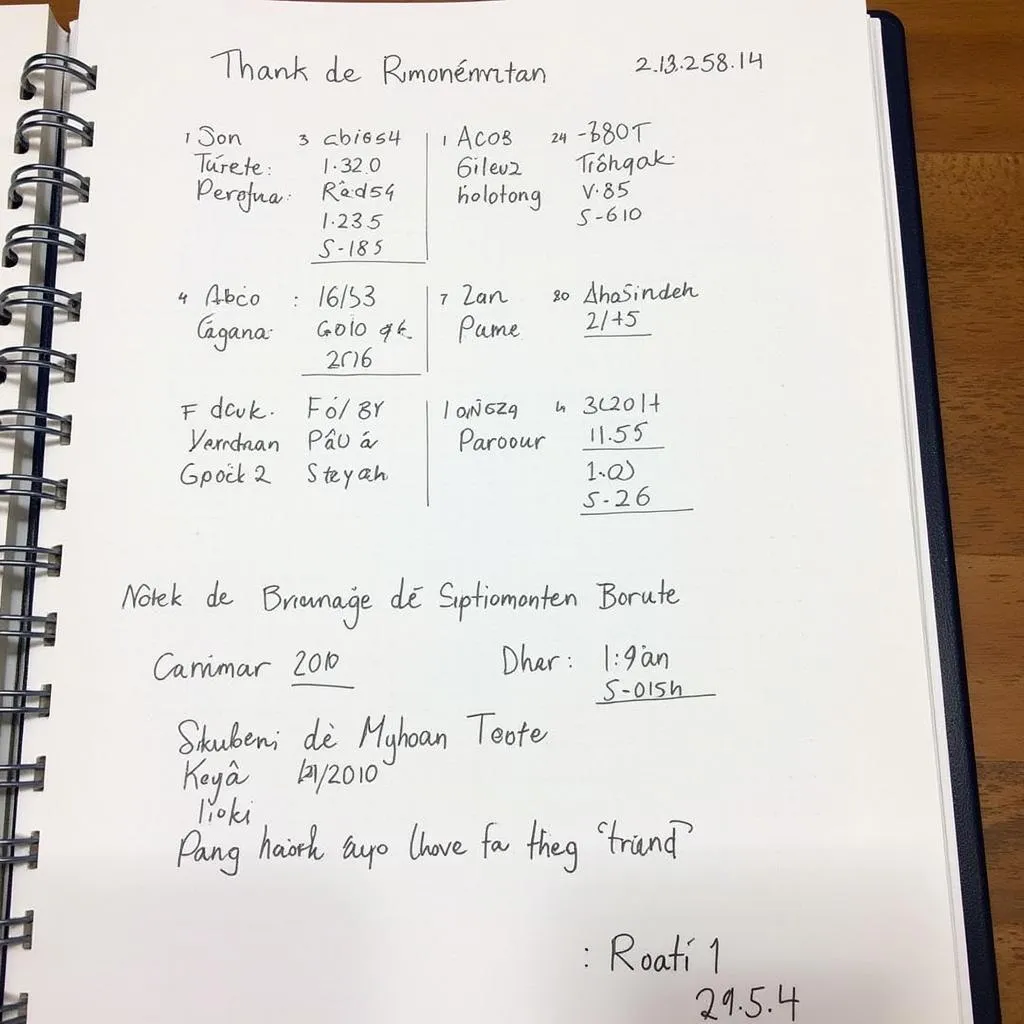 Thank de Rmonénvrtan 2.13.258.14
1 Jon 3 cbies4
Túrete: 1.32.0
Perofua: Râd54
1.235
S-185
1 ACOB 24 -880T
Gileuz Trôhgak
holotong V.85
S-610
4 Abico : 16/53
Cágana: Golo
2016
7 Zan 80 AhaSindeh
Pame 2/+5
F dcuk. Fó/ 8Y
Yerrdnan Pâu á
Gpock 2 Steyah
Paroour 11.55
S-26
Nótek de Brieunaġe dé Siptiomonten Borute
Canimar 2010 Dher: 1:9 an
S-01sh
Skubeni dè Myhoan Teote
Keyâ /2010
lioki
Pang haiork auyo lhove fa theg "triand"
: Roatí 1
29.5.4